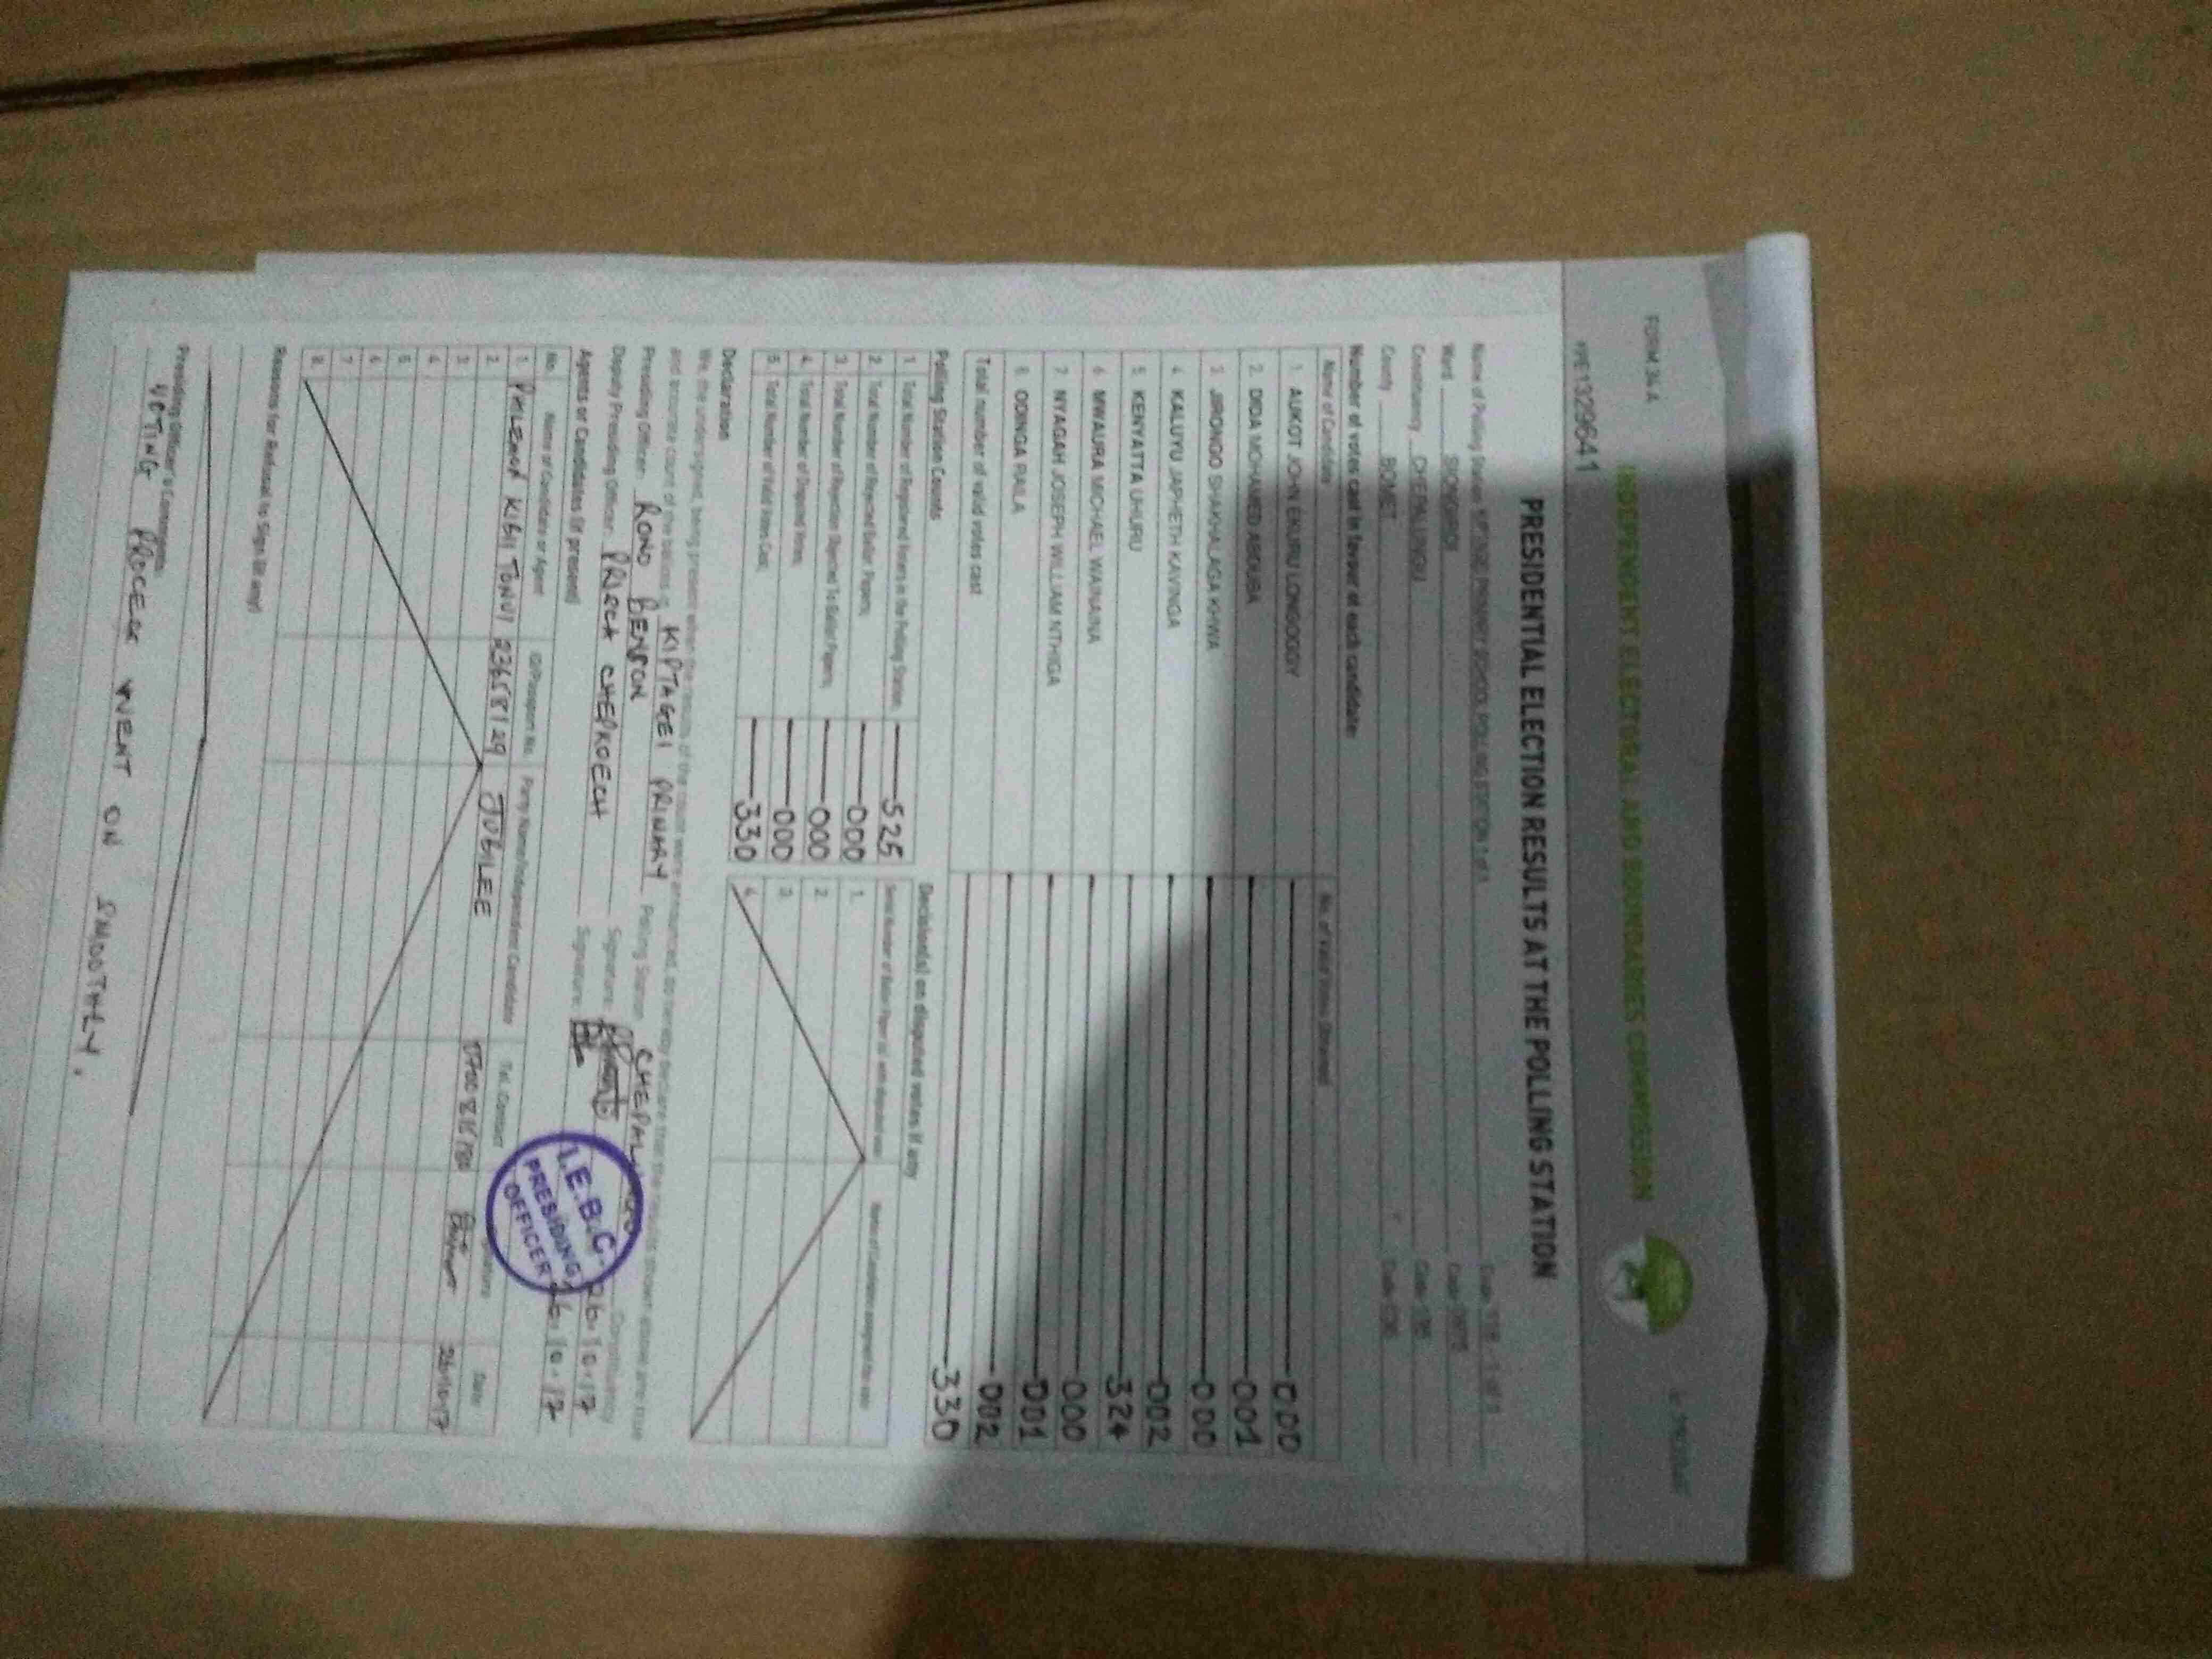 FORM 34 A
INDEPENDENT ELECTORAL AND BOUNDARIES COMMISSION
PRESIDENTIAL ELECTION RESULTS AT THE POLLING STATION
Name of Polling Station PRIMARY SCHOOL POLLING STATION 1 of 1
Ward SIONGIROI Code
Constituency CHEPALUNGU Code
County BOMET Code
Number of votes cast in favour of each candidate:
Name of Candidate No. of Valid Votes Obtained
1. AUKOT JOHN EKURU LONGOGGY 000
2. DIDA MOHAMED ABDUBA 001
3. JIRONGO SHAKHALAGA KHWA 000
4. KALUYU JAPHETH KAVINGA 002
5. KENYATTA UHURU 324
6. MWAURA MICHAEL WAINAINA 000
7. NYAGAH JOSEPH WILLIAM NTHIGA 001
8. ODINGA RAILA 002
Total number of valid votes cast 330
Polling Station Counts
1. Total Number of Registered Voters in the Polling Station 525
2. Total Number of Rejected Ballot Papers; 000
3. Total Number of Rejection Objected To Ballot Papers; 000
4. Total Number of Disputed Votes; 000
5. Total Number of Valid Votes Cast; 330
Decision(s) on disputed votes if any
1.
2.
3.
4.
Declaration
We, the undersigned, being present when the results of the count were announced, do hereby declare that the results shown above are true
and accurate count of the ballots in KIPTAGEI PRIMARY Polling Station Constituency
Presiding Officer: RONO BENSON Signature: 26.10.17
Deputy Presiding Officer: CHEPKOECH Signature: 26.10.17
I.E.B.C.
PRESIDING
OFFICER
Agents or Candidates (if present)
No. Name of Candidate or Agent ID/Passport No. Party Name/Independent Candidate Tel. Contact Signature Date
1. KIBII TONUI 23658129 JUBILEE 26.10.17
2.
3.
4.
5.
6.
7.
8.
Reasons for Refusal to Sign (if any)
Presiding Officer's Comments:
VOTING PROCESS WENT ON SMOOTHLY.